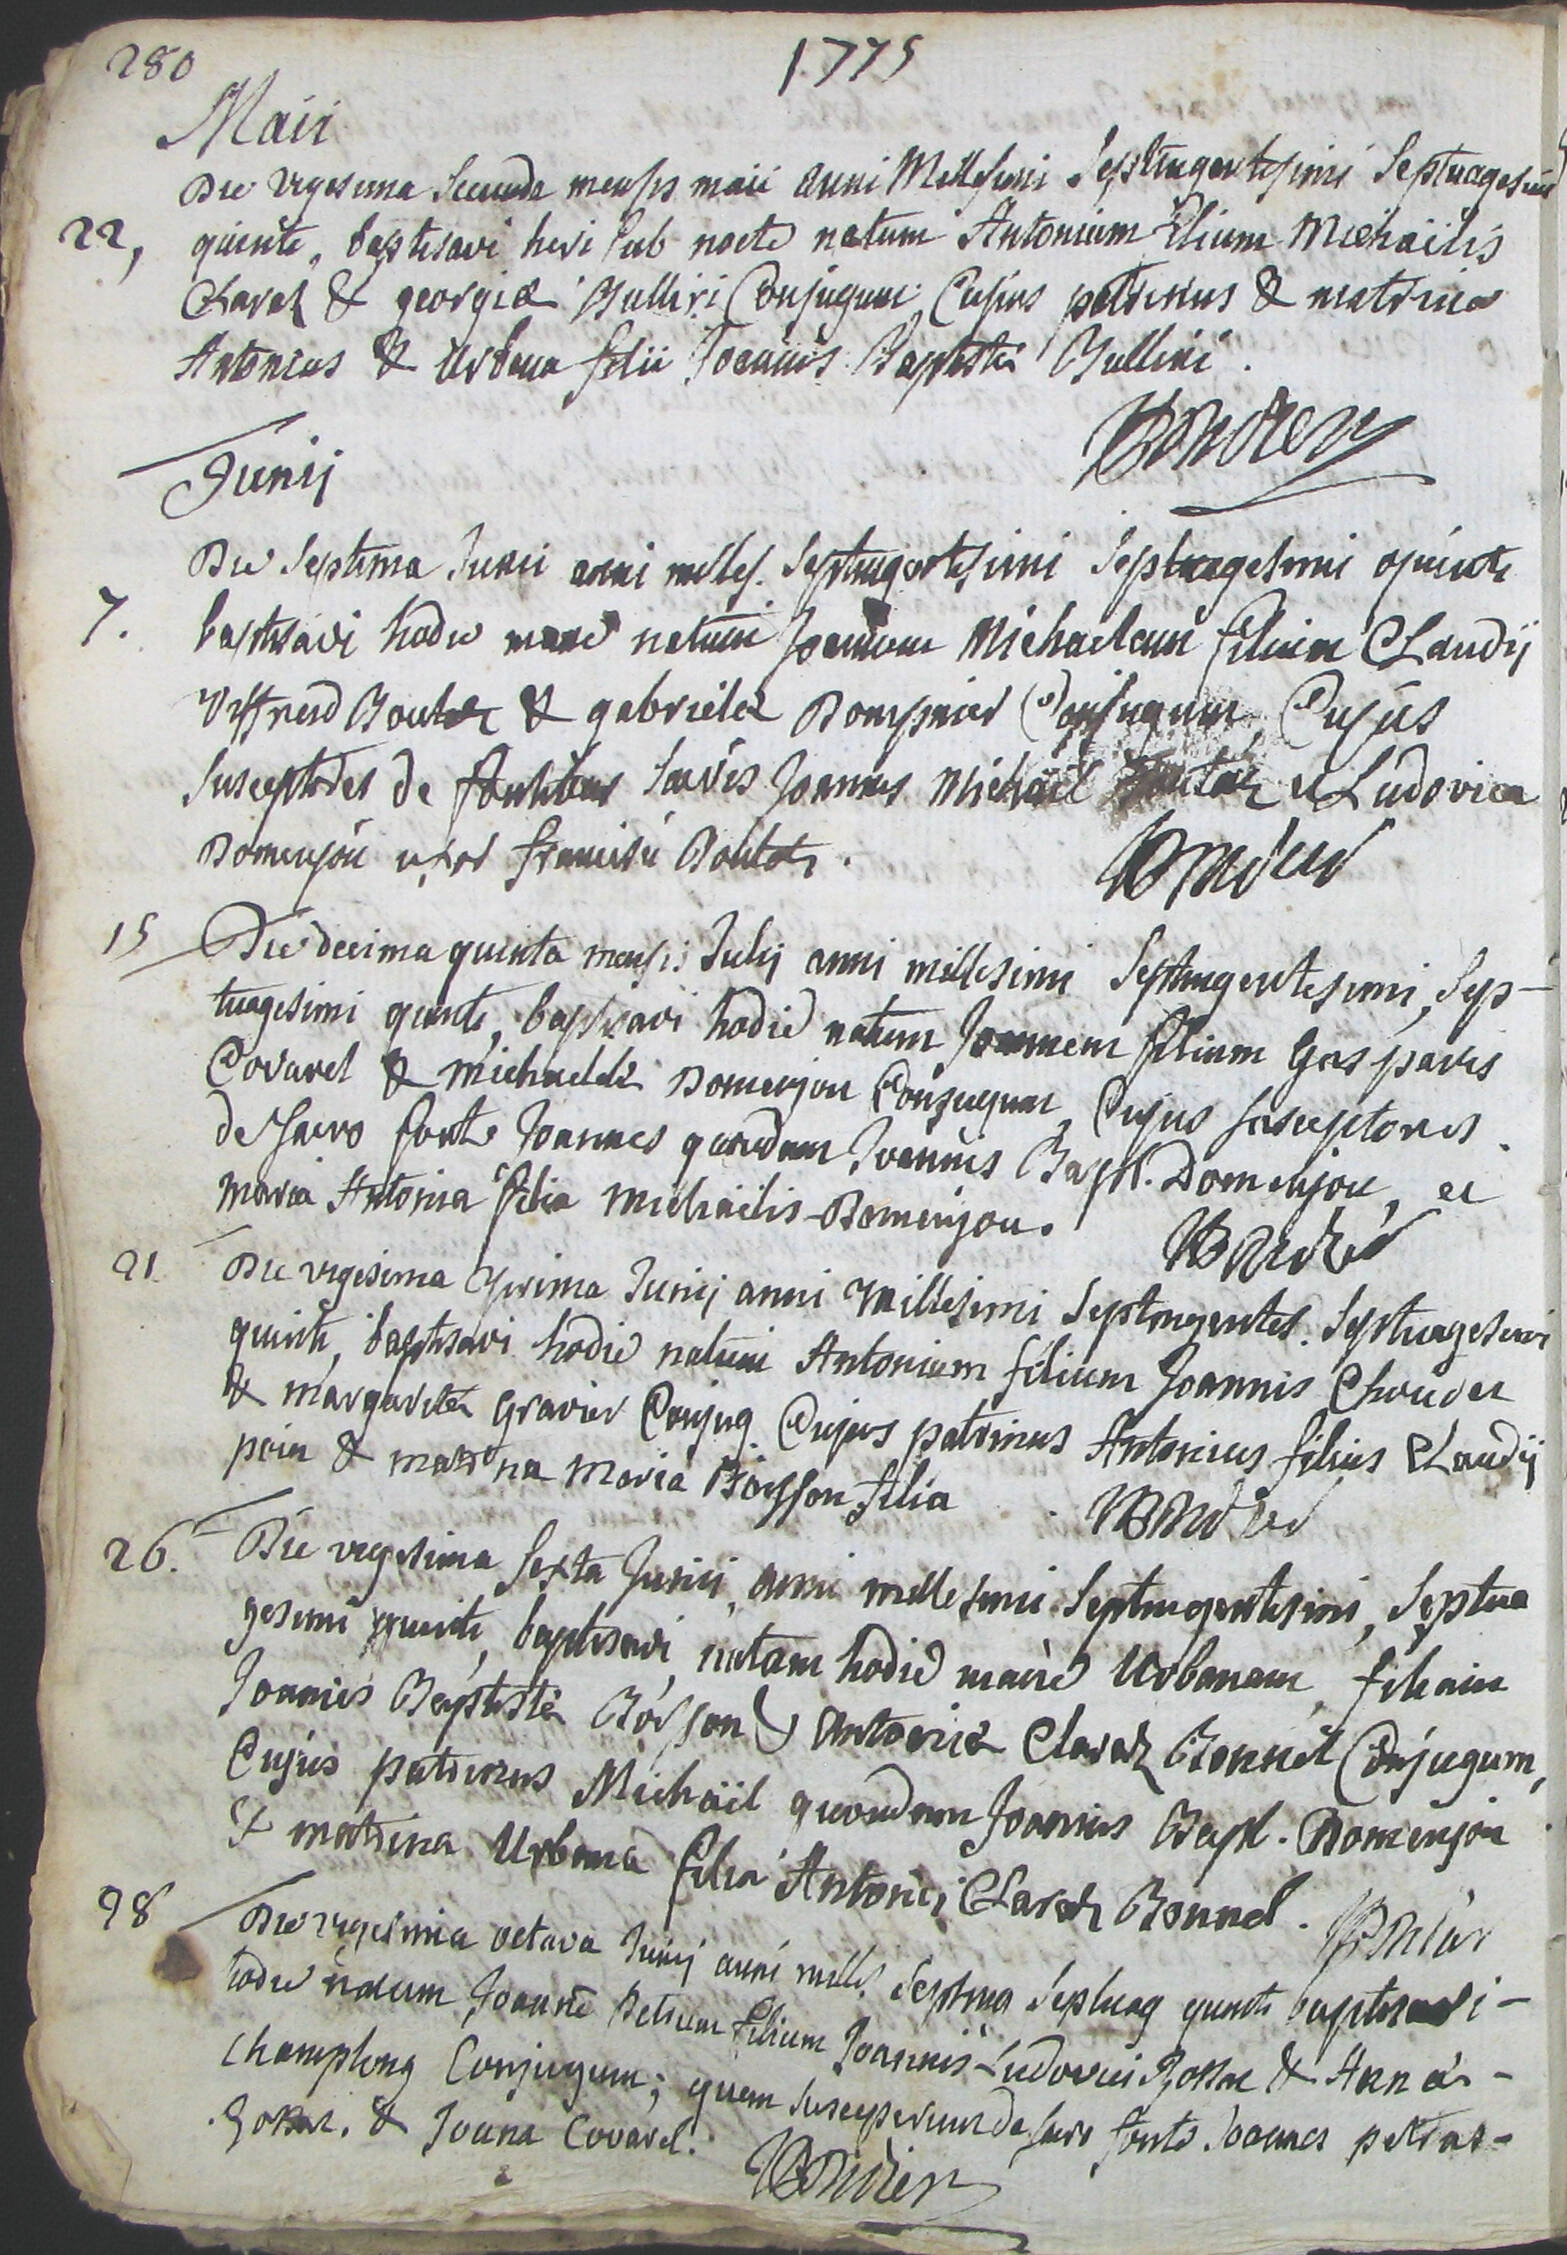 280
1775
Maii
Die vigesima secunda mensis maii anni Millesimi Septingentesimi Septuagesimi
22, quinti, baptisavi heri sub nocte natum Antonium filium Michaëlis
Clarat & georgiæ Bullini Conjugum; Cujus patrinus & matrina
Antonius & Urbana filii Joannis Baptistæ Bullini.
Junij
Die Septima Junii anni milles. Septingentesimi Septuagesimi quinti
7. baptisavi hodie mane natum Joannem Michaelem filium Claudij
Viffrend Boutaz & gabrielæ Dompnier Conjugum, Cujus
Susceptores de fontibus Sacris Joannes Michaël Boutaz et Ludovica
Domenjou uxor francisci Boutaz.
15 Die decima quinta mensis Julij anni millesimi Septingentesimi, Sep-
tuagesimi quinti, baptisavi hodie natum Joannem filium Gasparis
Covarel & Michaelæ Domenjou Conjugum, Cujus susceptores
de sacro fonte Joannes quondam Joannis Bapt. Domenjou, et
Maria Antonia filia Michaëlis Domenjou.
21. Die vigesima prima Junij anni Millesimi Septingentes. Septuagesimi
quinti, baptisavi hodie natum Antonium filium Joannis
& margaritæ gravier Conjug. Cujus patrinus Antonius filius Claudij
& matrina Maria filia
26. Die vigesima Sexta Junij, anni millesimi Septingentesimi, Septua
gesimi quinti, baptisavi natam hodie mane Urbanam, filiam
Joannis Baptistæ & Antoniæ Claraz Bonnel Conjugum,
Cujus patrinus Michaël quondam Joannis Bapt. Domenjou
& matrina Urbana filia Antonij Claraz Bonnel.
28 Die vigesima octava Junij anni milles. Septing Septuag quinti baptisavi -
hodie natum Joannē Petrum filium Joannis-Ludovici & Annæ -
Champlong Conjugum; quem susceperunt de sacro fonte Joannes petrus -
& Joana Covarel.